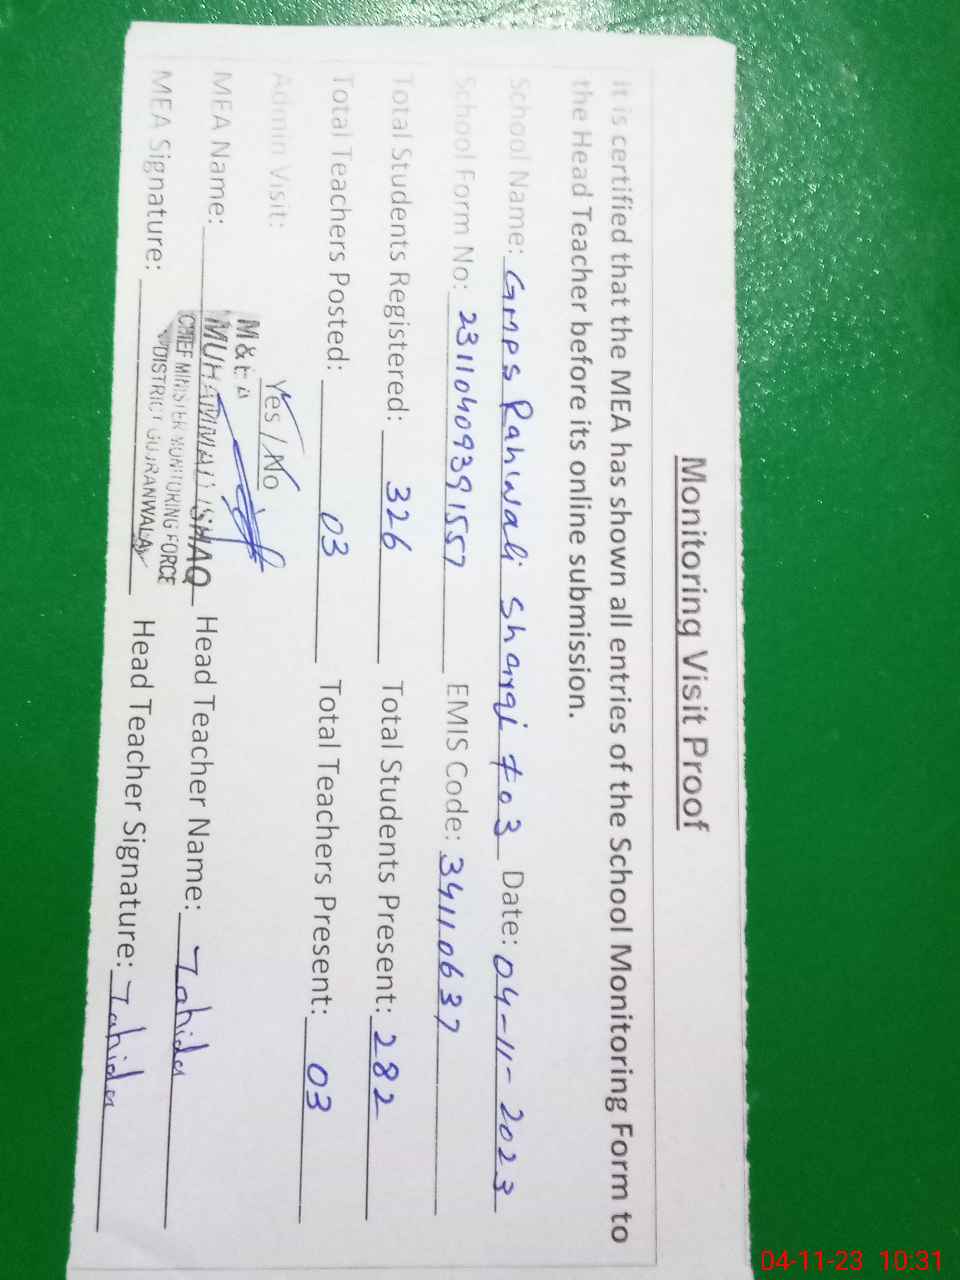 Monitoring Visit Proof
It is certified that the MEA has shown all entries of the School Monitoring Form to
the Head Teacher before its online submission.
School Name: GMPS Rahwali Sharqi #03 Date: 04-11-2023
School Form No: 23110409391557 EMIS Code: 34110637
Total Students Registered: 326 Total Students Present: 282
Total Teachers Posted: 03 Total Teachers Present: 03
Admin Visit: Yes / No
M & E A
MEA Name: MUHAMMAD ISHAQ Head Teacher Name: Tahida
CHIEF MINISTER MONITORING FORCE
DISTRICT GUJRANWALA
MEA Signature: Head Teacher Signature: Tahida
04-11-23 10:31